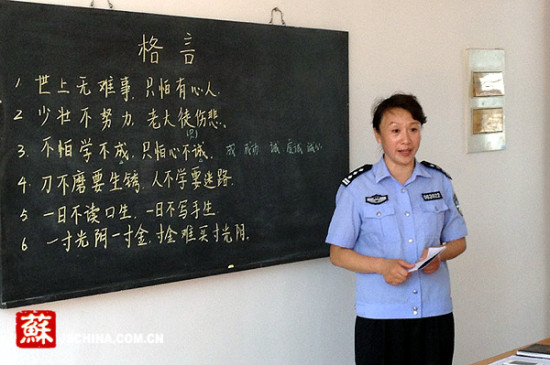 格言
1 世上无难事,只怕有心人.
2 少壮不努力,老大徒伤悲.
3. 不怕学不成,只怕心不诚. 成 成功 诚
4 刀不磨要生锈,人不学要迷路.
5 一日不读口生,一日不写手生
6 一寸光阴一寸金,寸金难买寸光阴.
蘇 JSCHINA.COM.CN